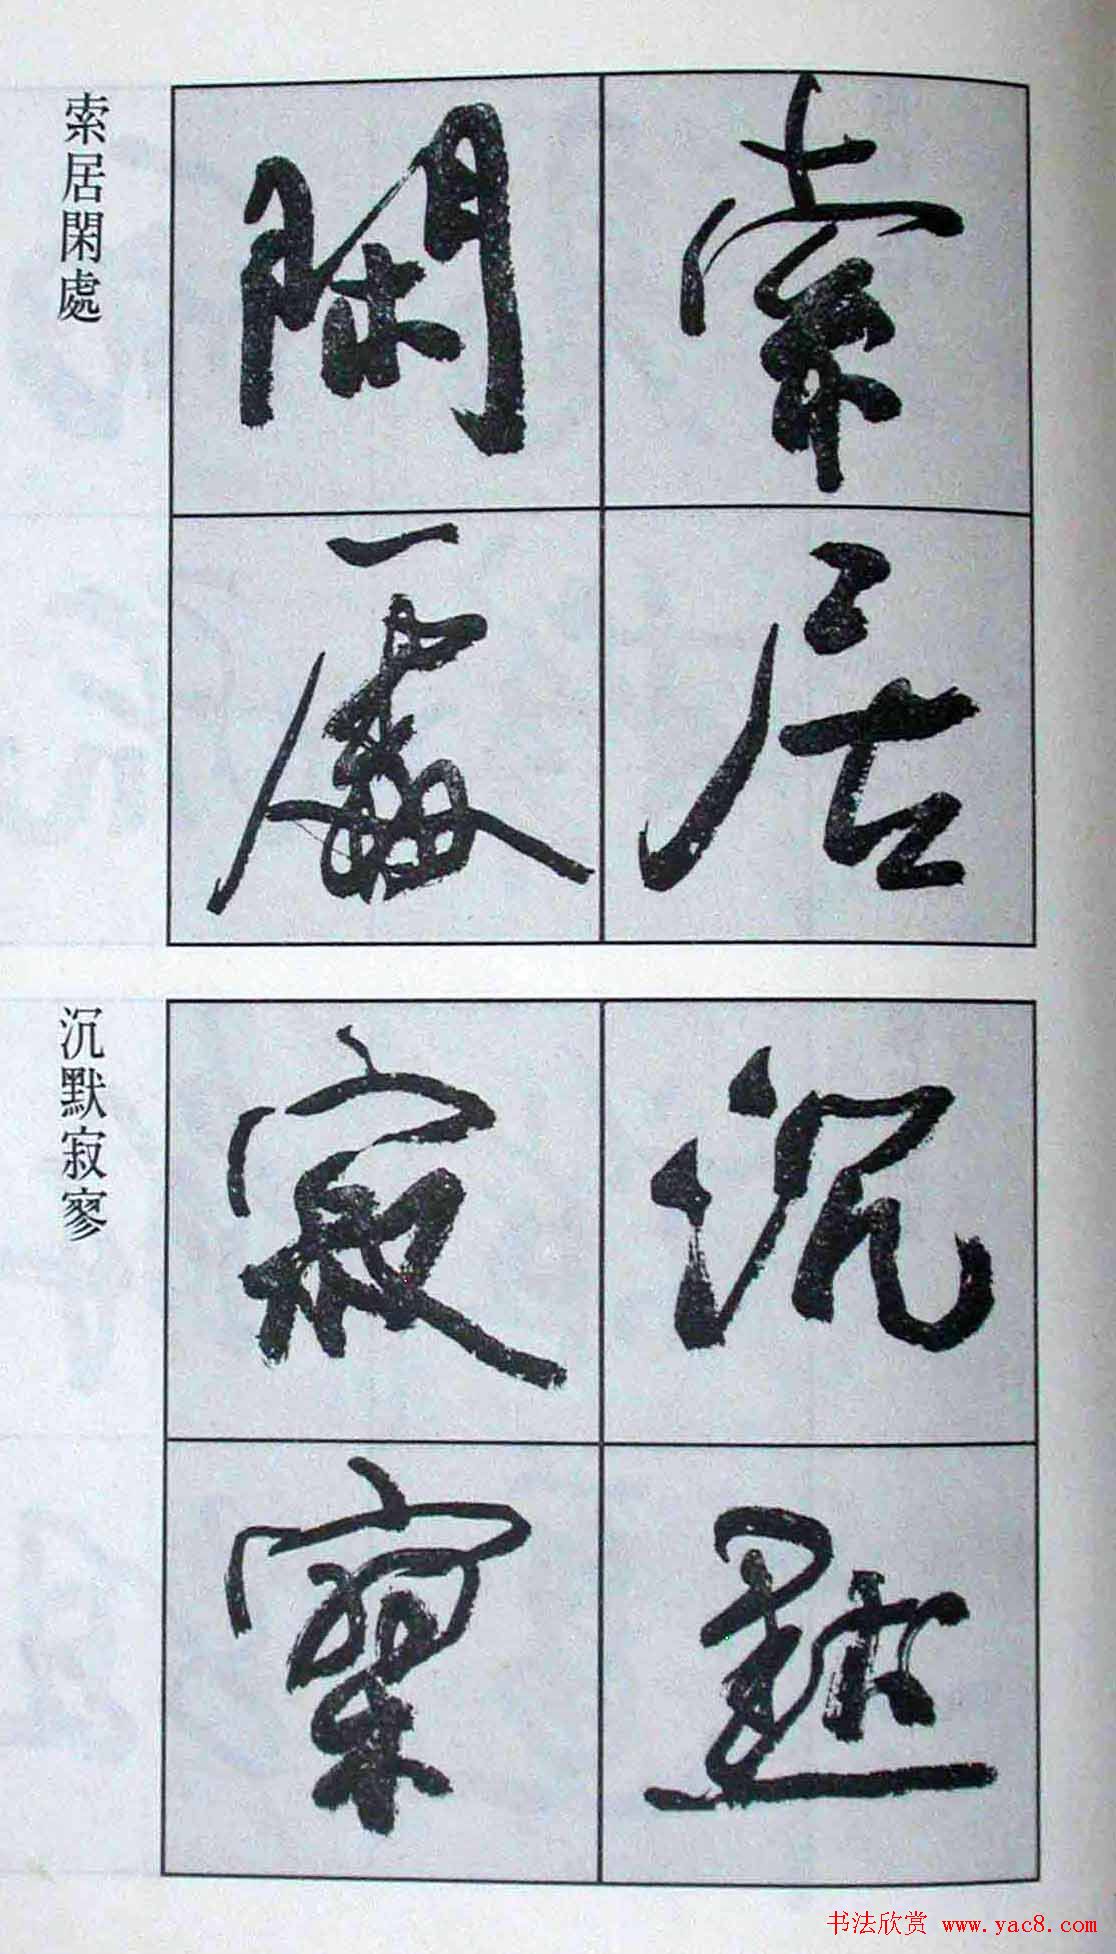 索居
閑處
索居閑處
沉默
寂寥
沉默寂寥
书法欣赏 www.yac8.com